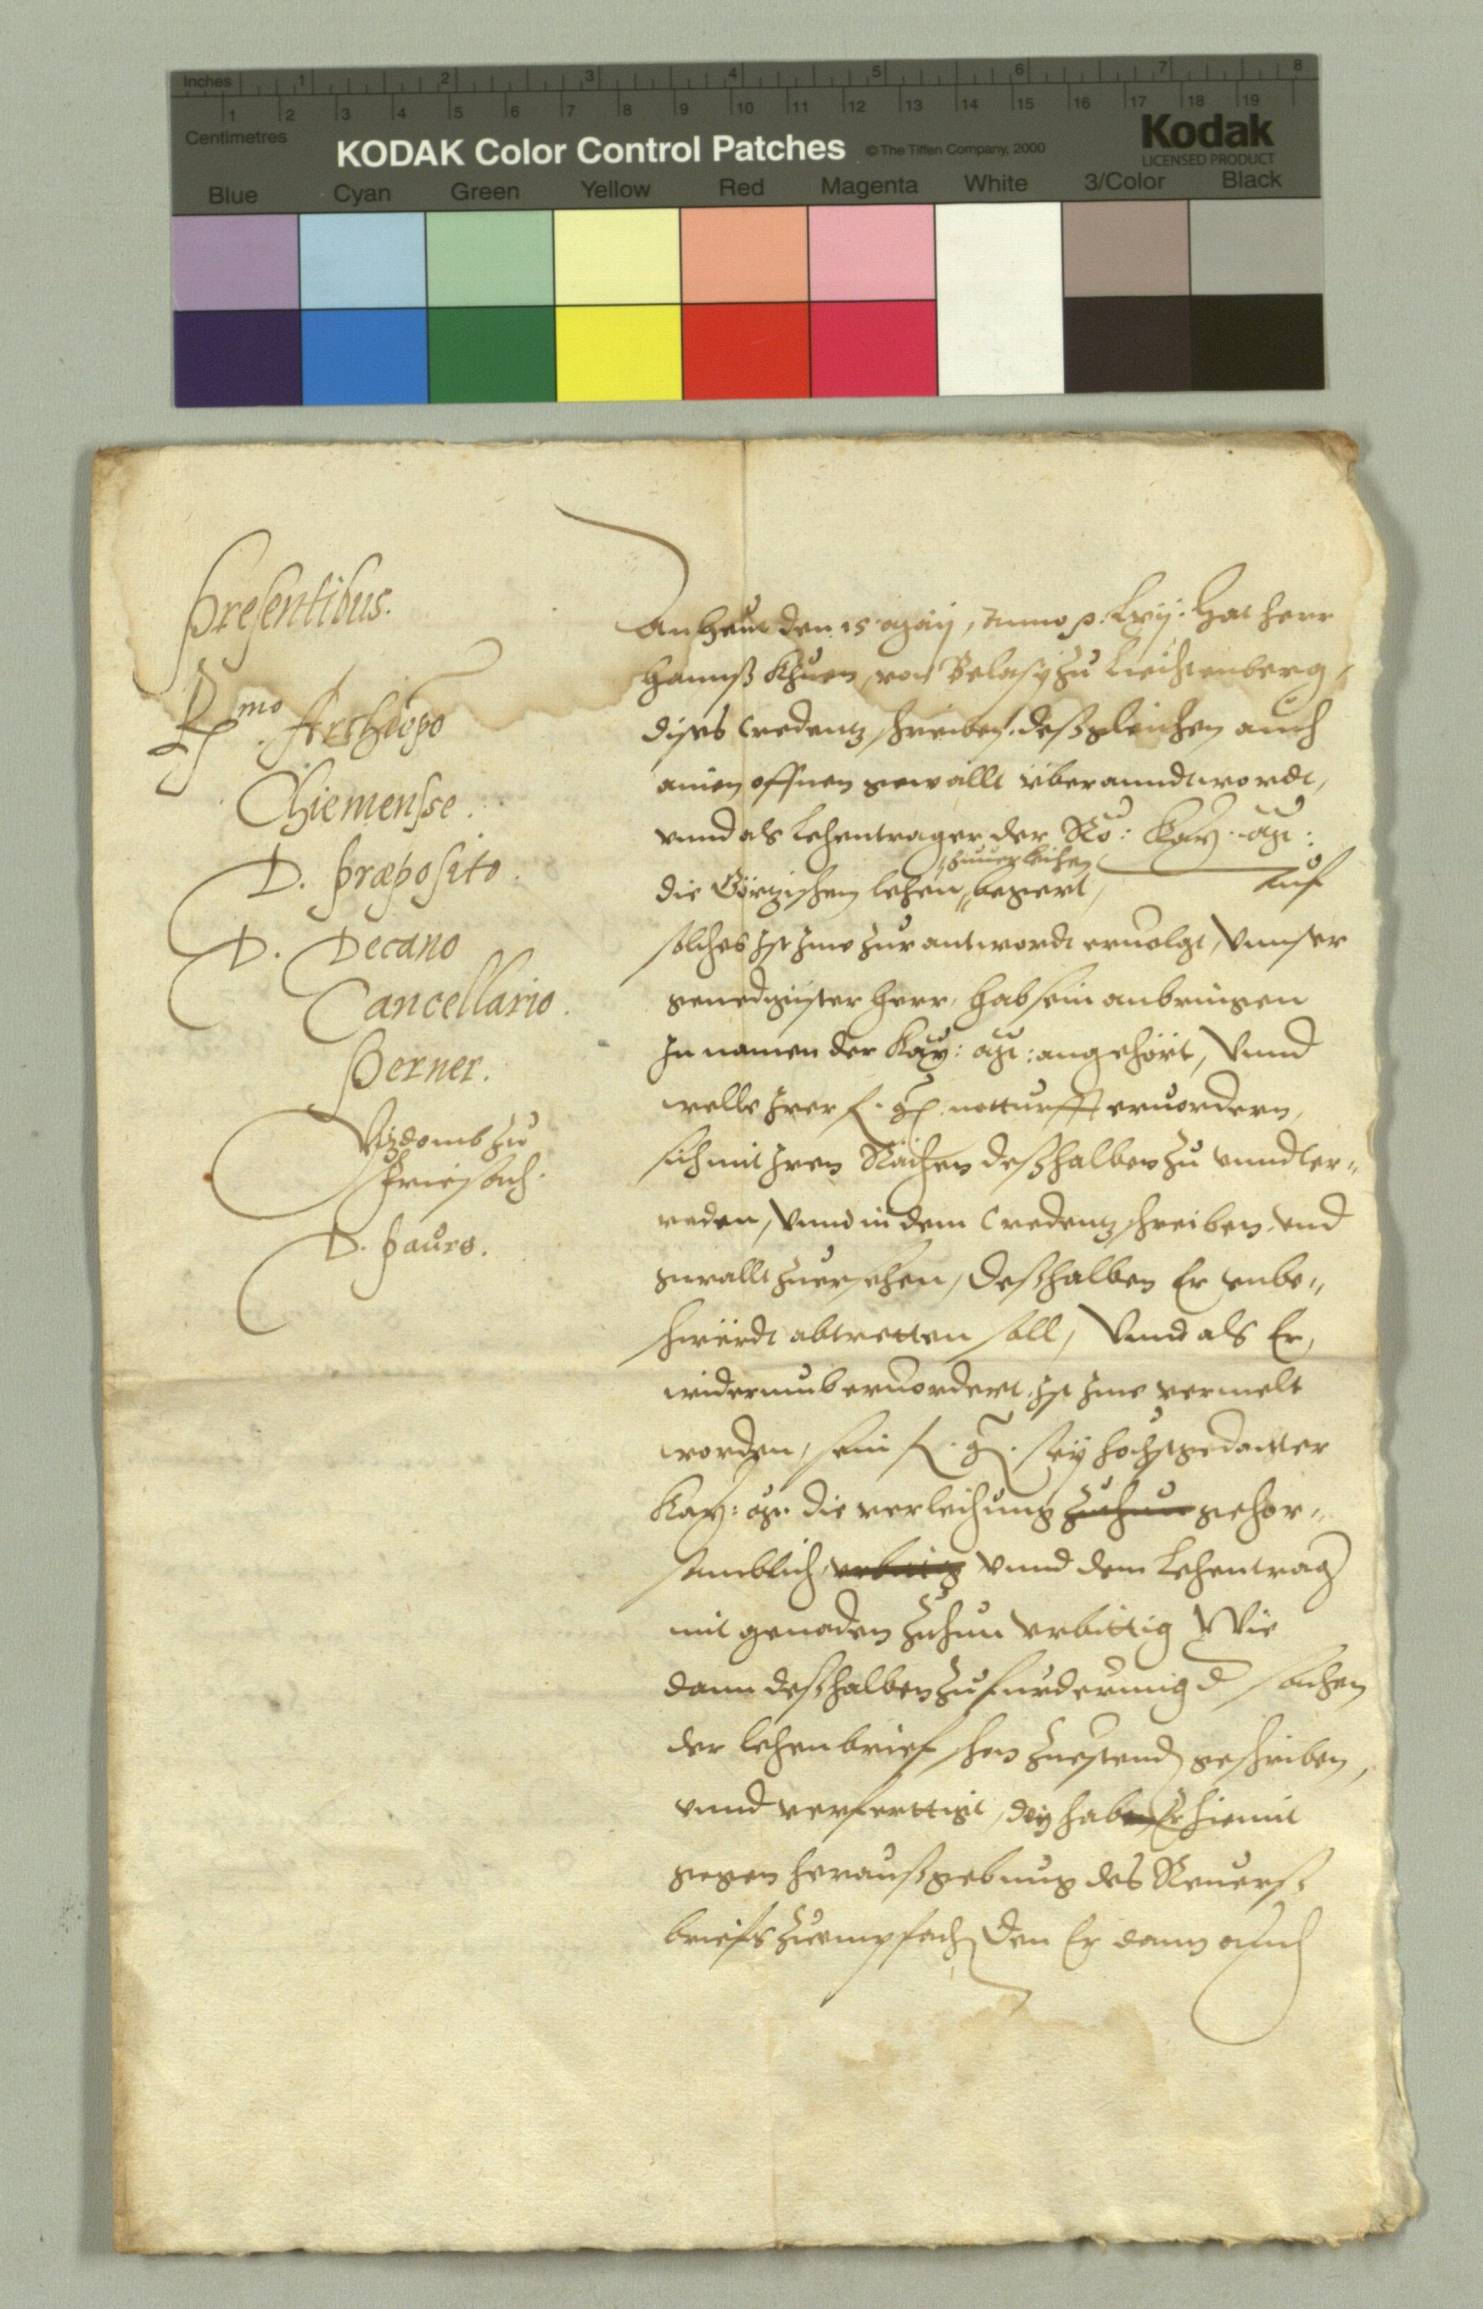 Inches 1 2 3 4 5 6 7 8
1 2 3 4 5 6 7 8 9 10 11 12 13 14 15 16 17 18 19
Centimetres
KODAK Color Control Patches © The Tiffen Company, 2000 Kodak
LICENSED PRODUCT
Blue Cyan Green Yellow Red Magenta White 3/Color Black
Presentibus.
R^mo. Archiepo
Chiemensse.
D. Præposito.
D. Decano
Cancellario.
Perner.
Vizdomb zu
Friesach.
D. Pauro.
Anheut den 15 May, Anno p. Lxij. Hat herr
Hannß Khuen von Belasy zu Liechtenberg,
dises Credentz schreiben, deßgleichen auch
ainen offnen gewallt überanndtwordt,
vnnd als Lehentrager der Rö: Kay: Mt:
zuuerleichen
die Görzischen lehen begert, Auf
solches Ist Ime zur antwordt eruolgt, Vnnser
genedigister herr, hab sein anbringen
In namen der Kay: Mt: angehört, Vnnd
welle Irer f. g. notturfft eruordern,
sich mit Iren Räthen deßhalben zu vnndter=
reden, Vnnd in dem Credentz schreiben vnd
gwallt zuersehen, deßhalben Er vnbe=
schwërdt abtretten soll, Vnnd als Er,
widerumb eruordert, Ist Ime vermelt
worden, sein f. g. sey hochstgedachter
Kay: Mt: die verleichung zuthun gehor=
samblich vrbittig vnnd dem Lehentrag
mit genaden zuthun vrbittig Wie
dann deßhalben zu furderung d sachen
der lehenbrief schon zuestend geschriben,
vnnd verferttigt, den haben Er hiemit
gegen heraußgebung des Reuerß
briefs zuempfach den Er dann auch